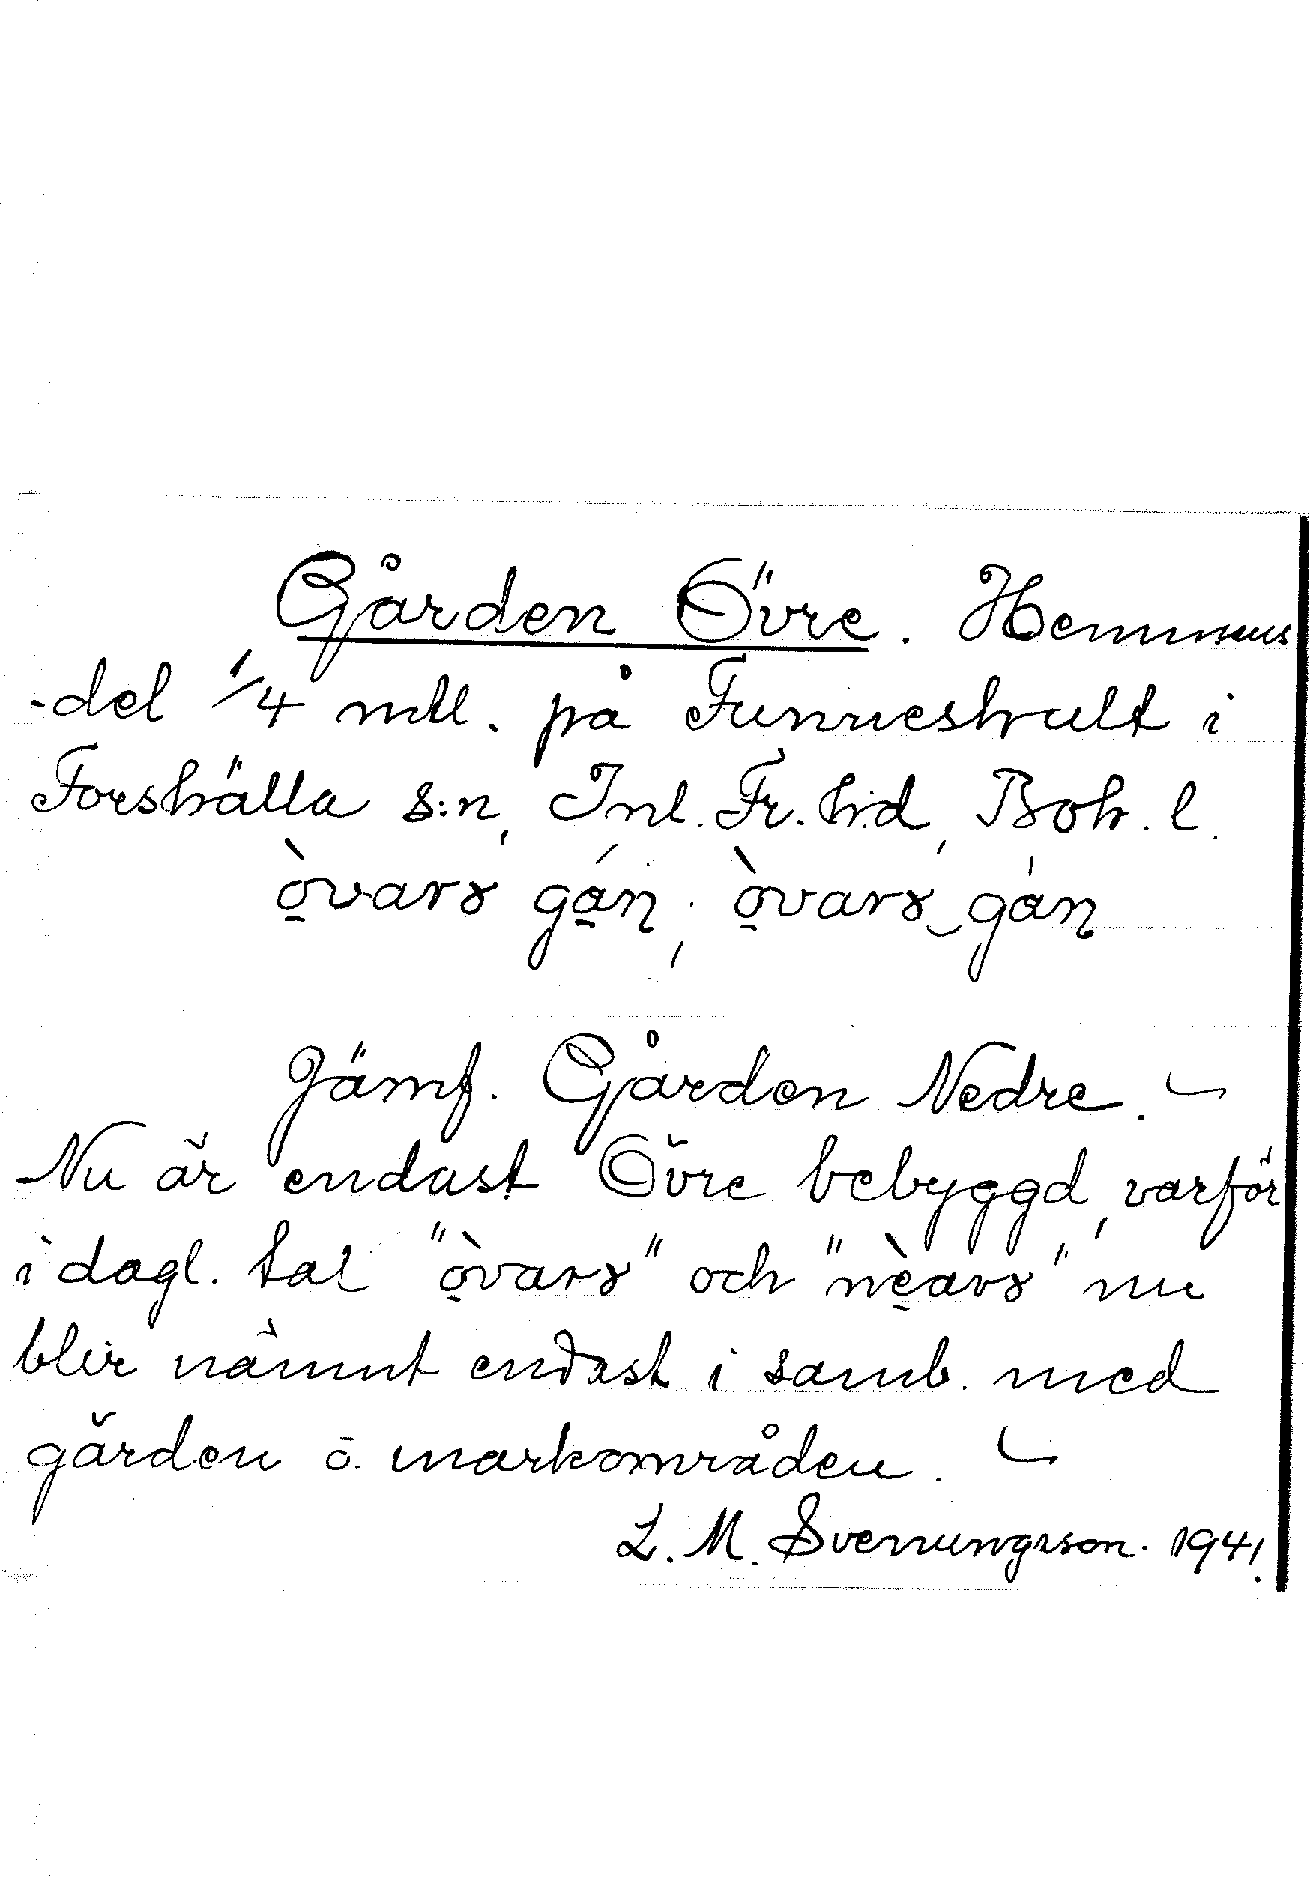 Gården Övre. Hemmans
-del 1/4 mtl. på Funneshult i
Forshälla s:n, Inl. Fr. h:d, Boh. l.
ò̱varɤ gá̱ɳ; ò̱varɤ‿gáɳ
Jämf. Gården Nedre.
Nu är endast Övre bebyggd, varför
i dagl. tal "ò̱varɤ" och "nè̱avɤ" nu
blir nämnt endast i samb. med
gärden o. markområden.
L. M. Svenungsson. 1941.